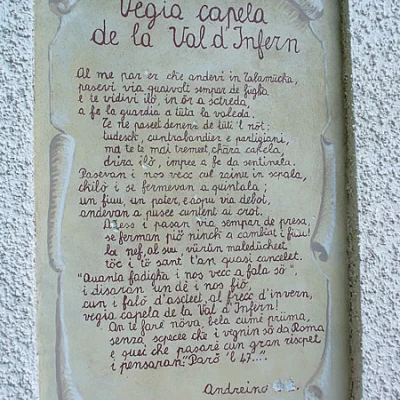 Vegia capela
de la Val d'Infern
Al me par er che andevi in Talamücka,
pasevi via quaivolt sempar de füga
e te vidivi ilò, in ör a sctreda,
a fe la guardia a tüta la valeda.
Te ne pasect denenz de tüti 'l nöt:
tudesck, cuntrabandier e partigiani,
ma te te mai tremeet, chara capela,
drira ilò, impee a fe da sentinela.
Pasevan i nos vecc cul zainu in scpala,
chilò i se fermevan a
un fiuu, un poter, e apu via debot,
andevan a pusee cuntent ai crot.
Adess i pasan via sempar de presa,
se ferman piö ninck a cambiat i fiuu!
la nef, al suu vürün maledüchect
töc i tö sant t'an quasi cancelet.
"Quanta fadigha i nos vecc a fala sö",
i disaran un dè i nos fiö,
cun i falò d'asctect, al frecc d'invern,
vegia capela de la Val d'Infern!
An te farè növa, bela cumè prüma,
senza scpecee che i vegnin sö da Roma
e quei che pasarè cun gran riscpet
i pensaran: "Parò 'l 47...".
Andreino